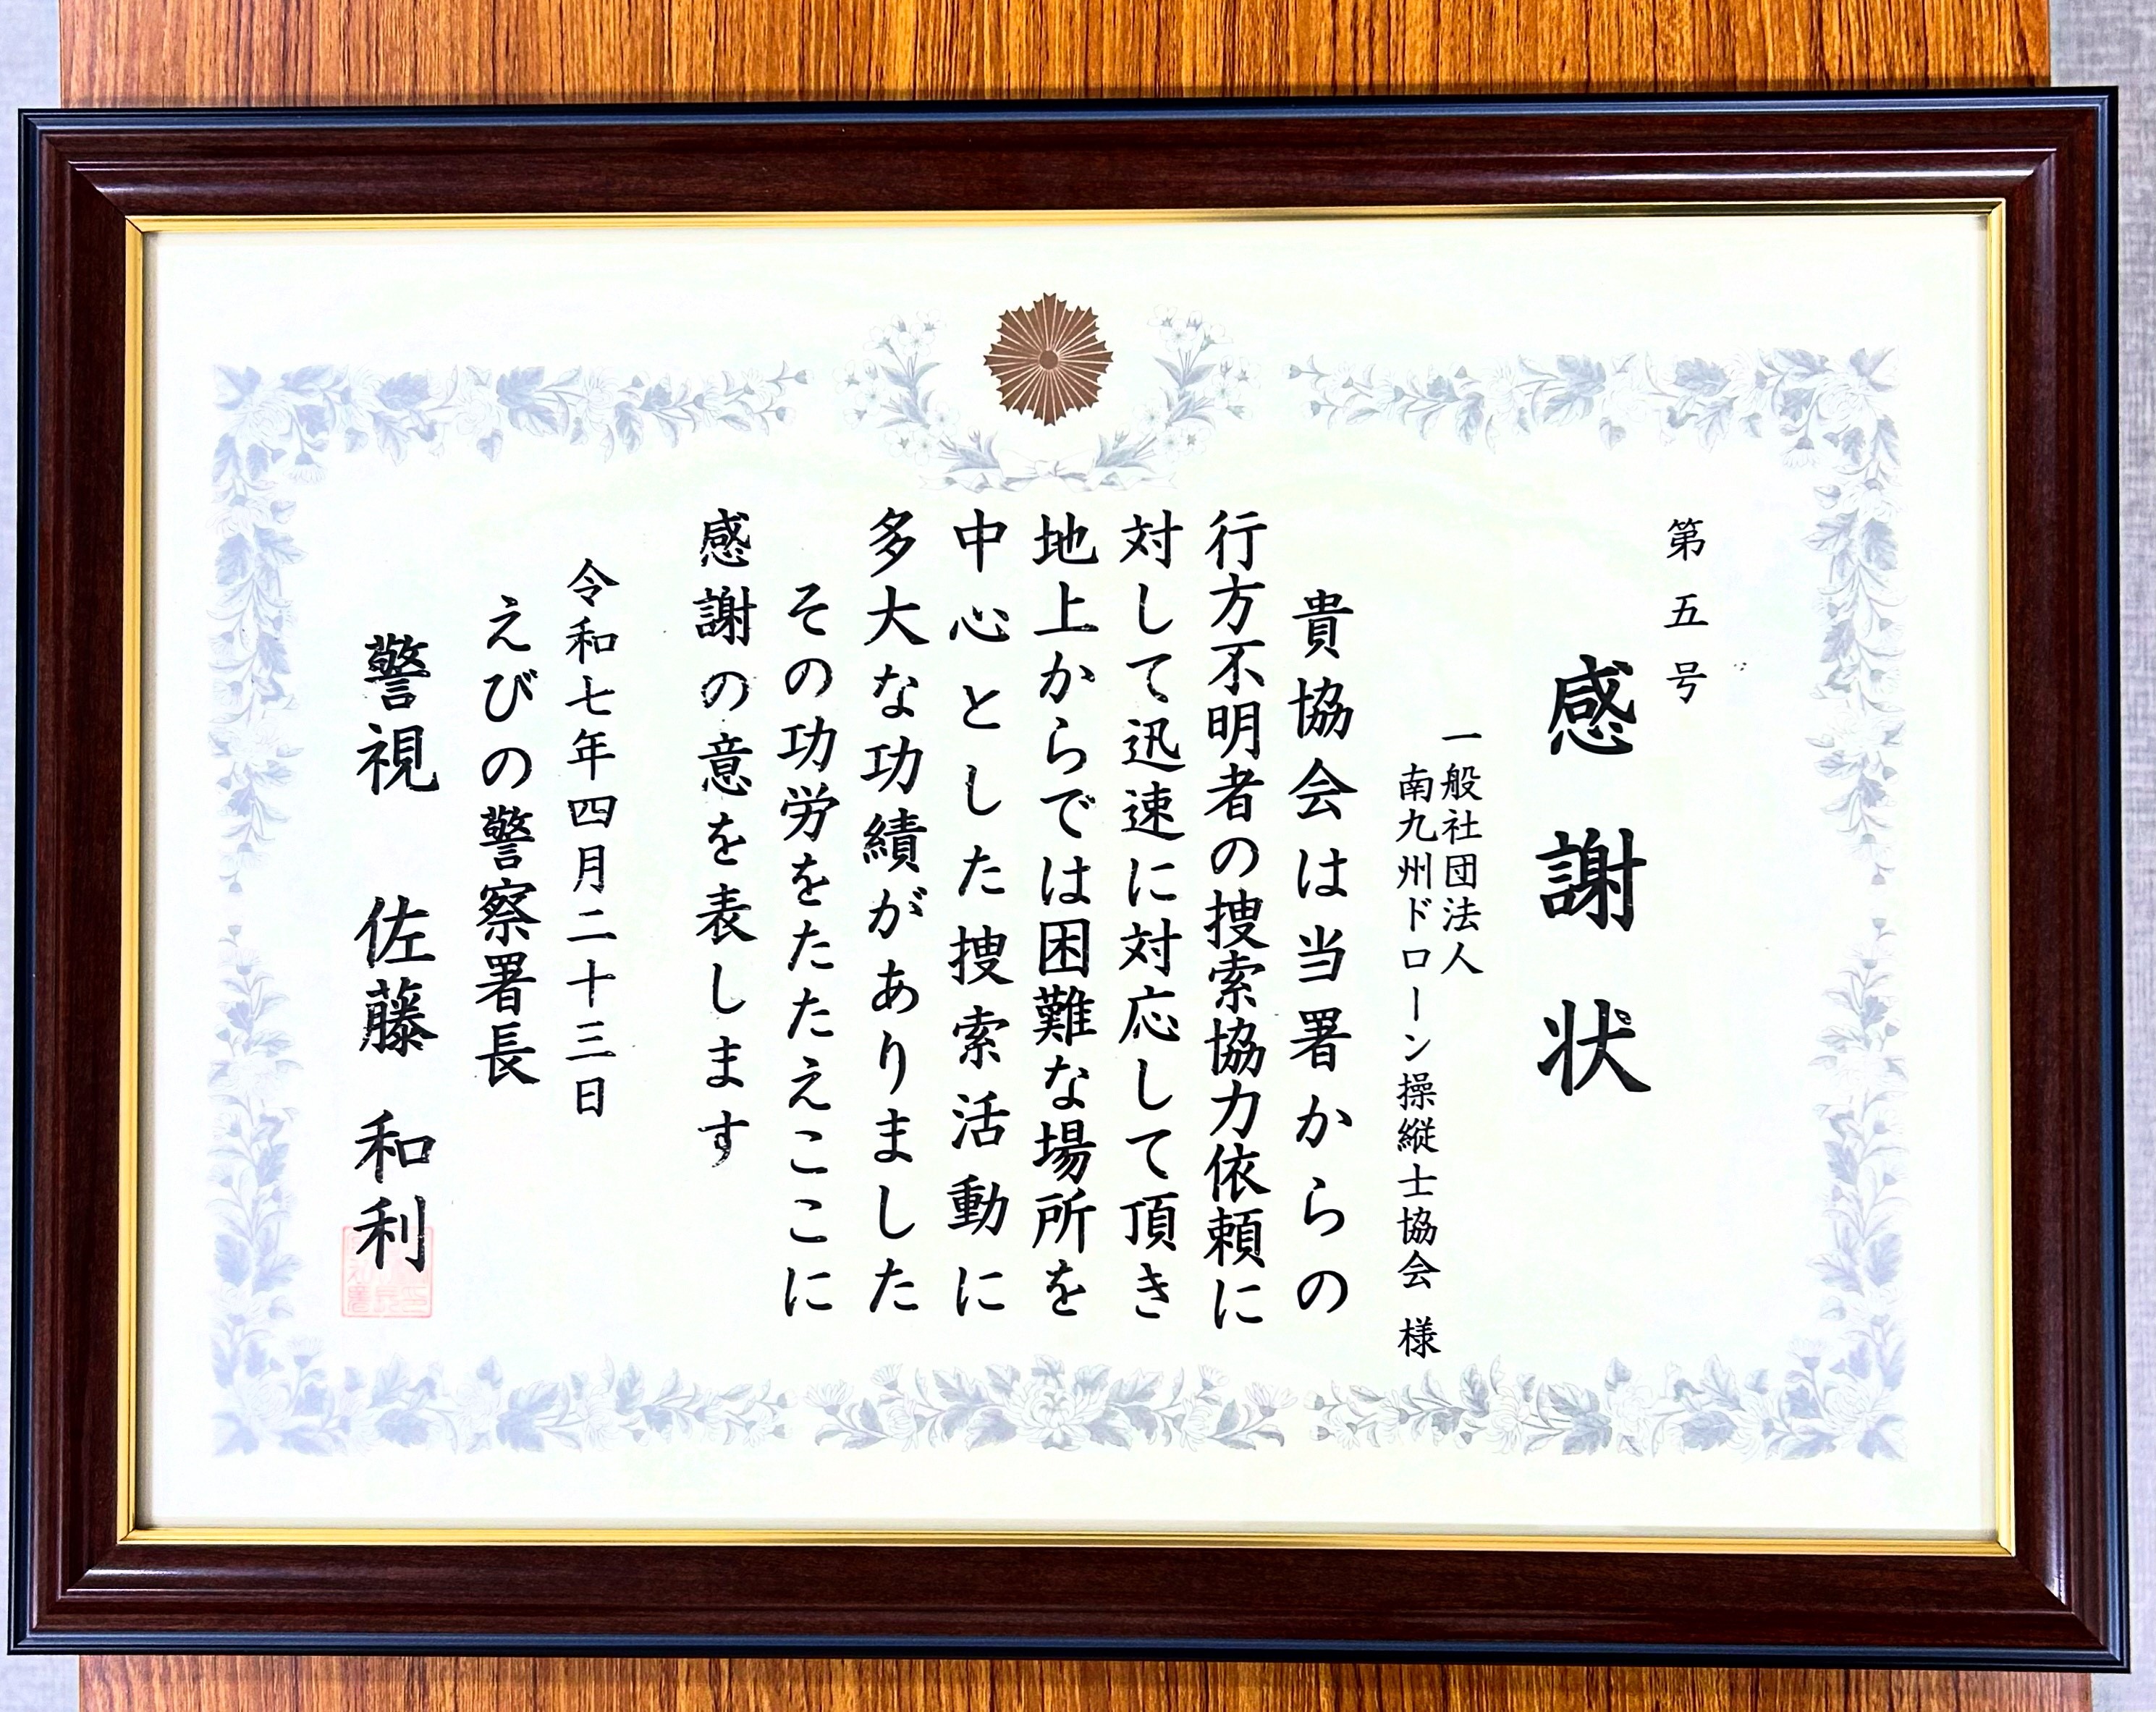 第五号
感謝状
一般社団法人
南九州ドローン操縦士協会 様
貴協会は当署からの
行方不明者の捜索協力依頼に
対して迅速に対応して頂き
地上からでは困難な場所を
中心とした捜索活動に
多大な功績がありました
その功労をたたえここに
感謝の意を表します
令和七年四月二十三日
えびの警察署長
警視 佐藤 和利